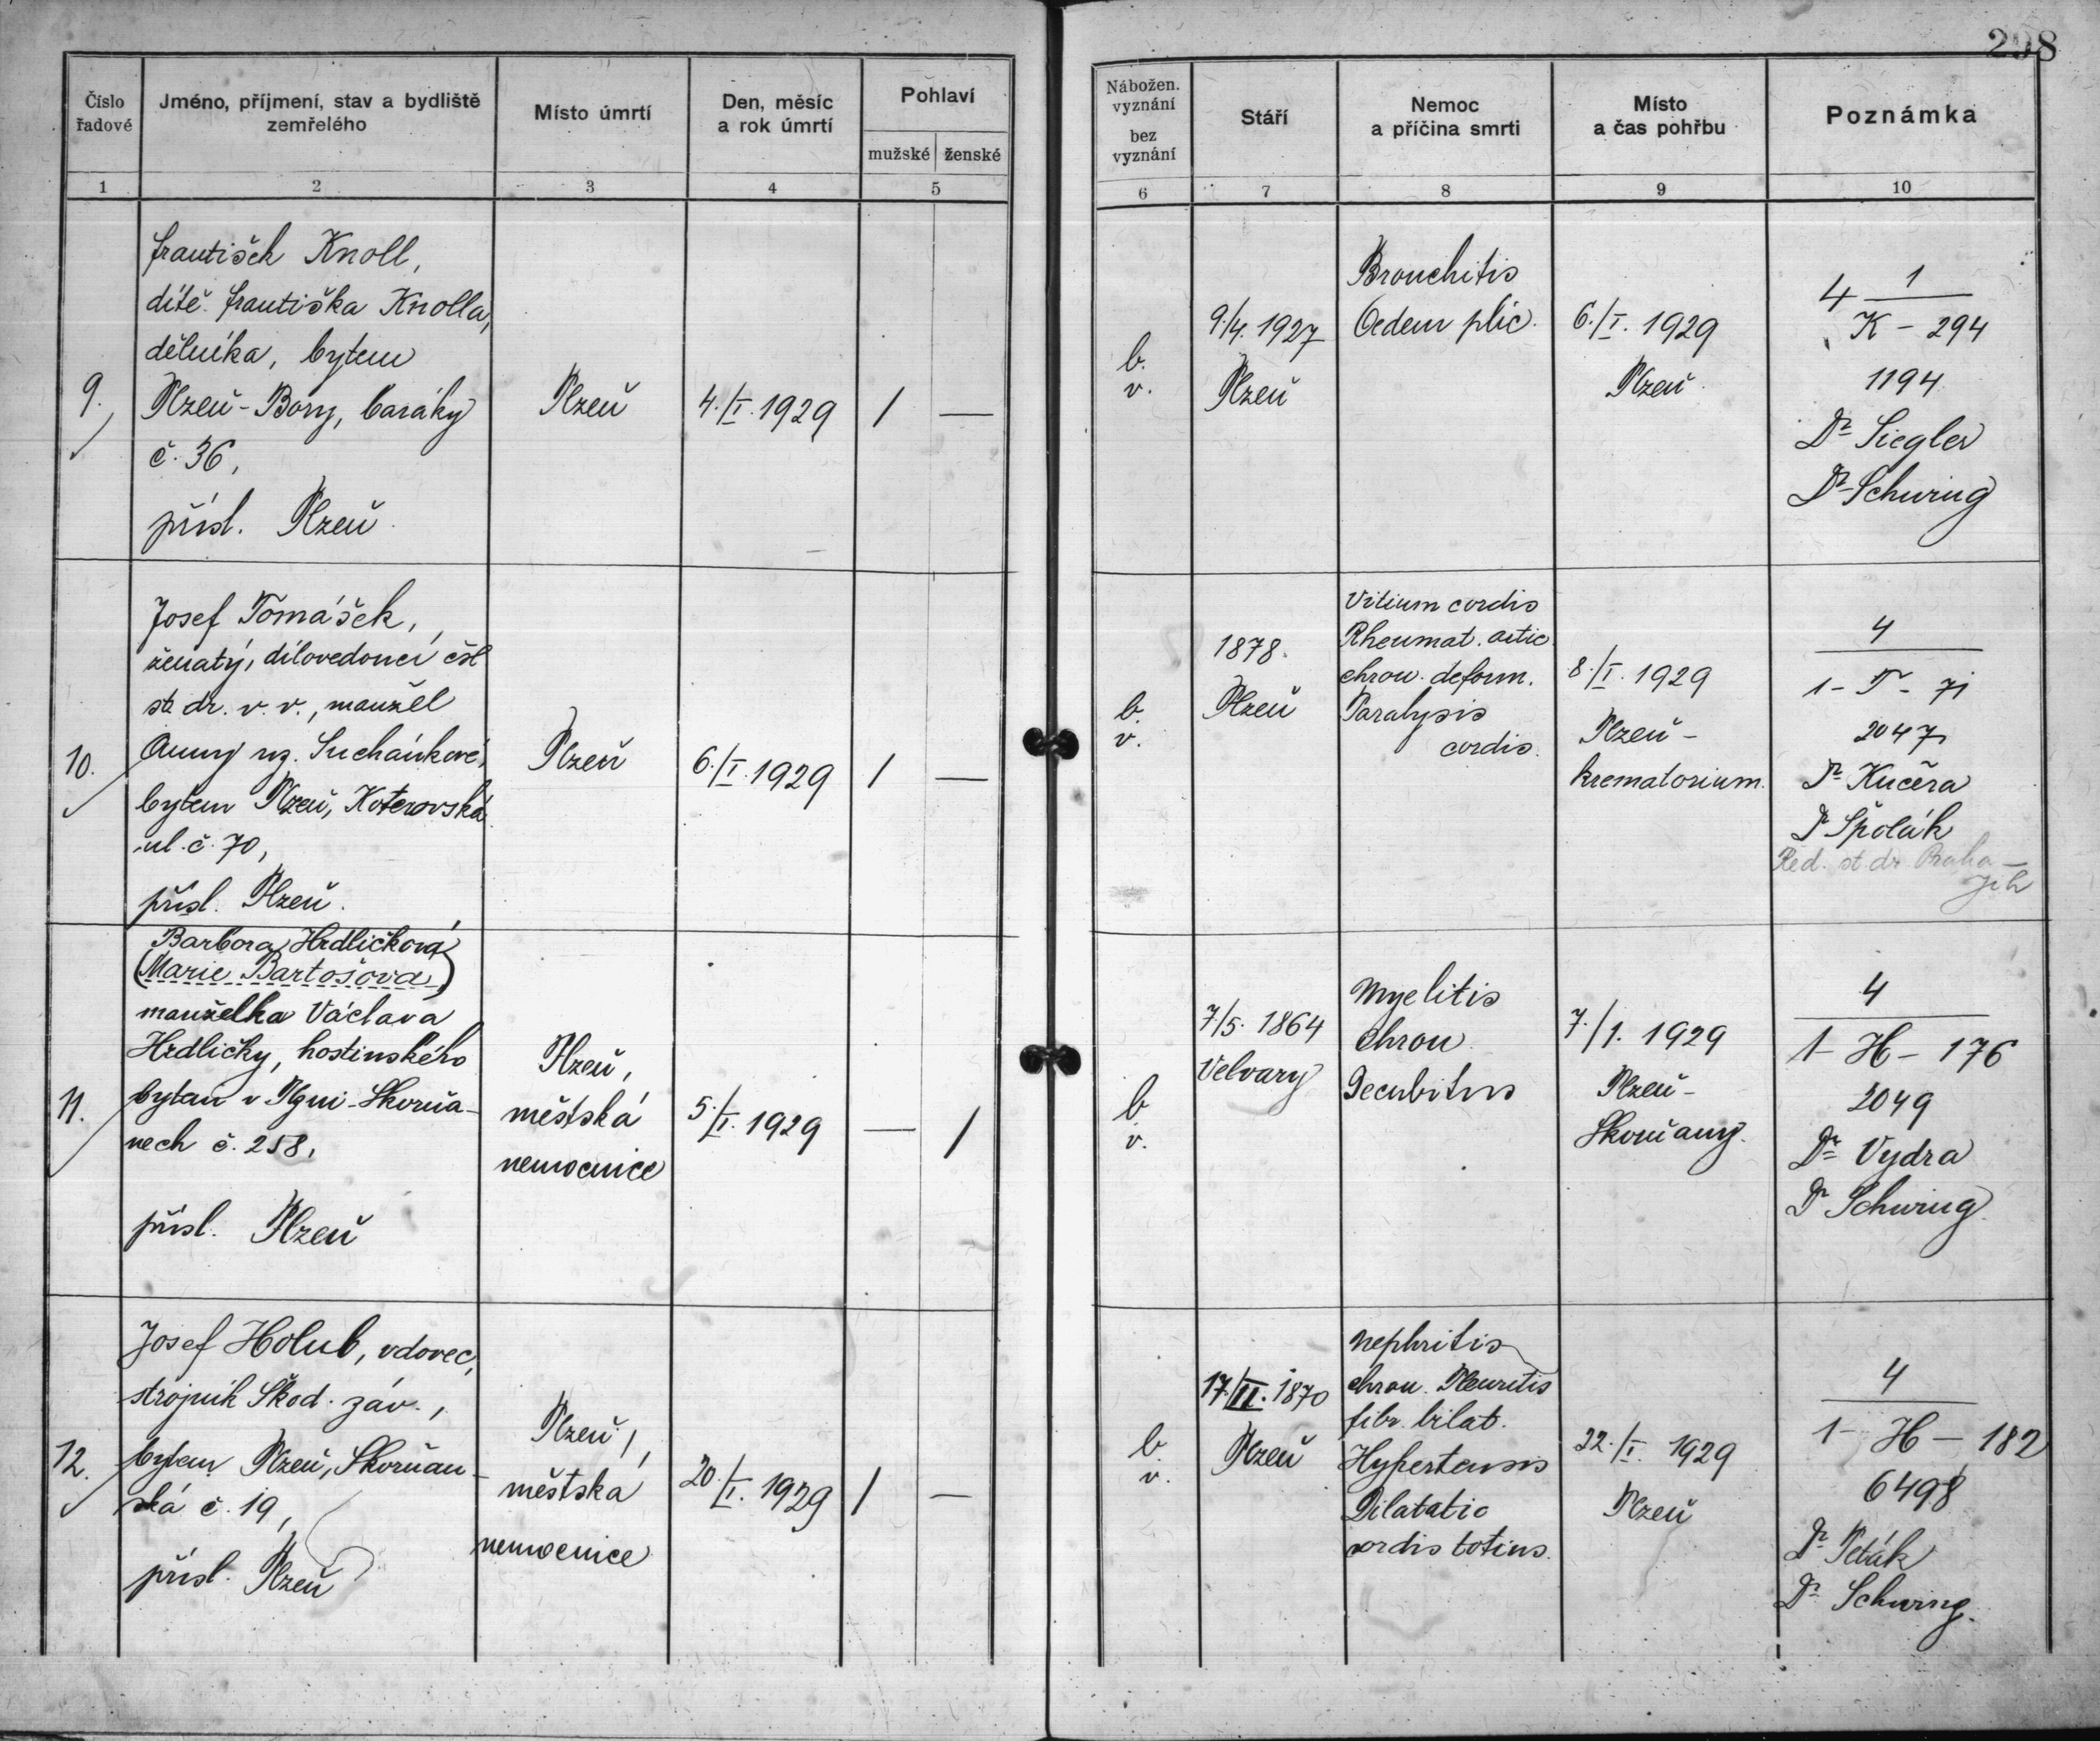 298
Číslo řadové
Jméno, příjmení, stav a bydliště zemřelého
Místo úmrtí
Den, měsíc a rok úmrtí
Pohlaví
mužské ženské
Nábožen. vyznání bez vyznání
Stáří
Nemoc a příčina smrti
Místo a čas pohřbu
Poznámka
1 2 3 4 5 6 7 8 9 10
9.
František Knoll,
dítě Františka Knolla,
dělníka, bytem
Plzeň-Bory, baráky
č. 36,
přísl. Plzeň.
Plzeň
4./I. 1929
/ —
b.
v.
9./4. 1927
Plzeň
Bronchitis
Oedem plic.
6./I. 1929
Plzeň.
4 1
K - 294
1194
Dr Siegler
Dr Schwing
10.
Josef Tomášek,
ženatý, dílovedoucí čsl
st. dr. v. v., manžel
Anny roz. Suchánkové,
bytem Plzeň, Koterovská
ul. č. 70,
přísl. Plzeň.
Plzeň
6./I. 1929
/ —
b.
v.
1878.
Plzeň
Vitium cordis
Rheumat. artic.
chron. deform.
Paralysis
cordis.
8./I. 1929
Plzeň -
krematorium.
4
1 - T - 71
2047
Dr Kučera
Dr Špolák
Řed. st. dr Praha -
jih
11.
Barbora Hrdličková
(Marie Bartošová)
manželka Václava
Hrdličky, hostinského
bytem v Plzni-Skvrňa-
nech č. 258,
přísl. Plzeň
Plzeň,
městská
nemocnice
5./I. 1929
— /
b.
v.
7./5. 1864
Velvary
Myelitis
chron.
Decubitus
7./1. 1929
Plzeň -
Skvrňany.
4
1 - H - 176
2049
Dr Vydra
Dr Schwing.
12.
Josef Holub, vdovec,
strojník Škod. záv.,
bytem Plzeň, Skvrňan-
ská č. 19,
přísl. Plzeň
Plzeň,
městská
nemocnice
20./I. 1929
/ —
b.
v.
17./II. 1870
Plzeň
Nephritis
chron. Pleuritis
fibr. bilat.
Hypertensis
Dilatatio
cordis totius.
22./I. 1929
Plzeň
4
1 - H - 182
6498
Dr Peták
Dr Schwing.